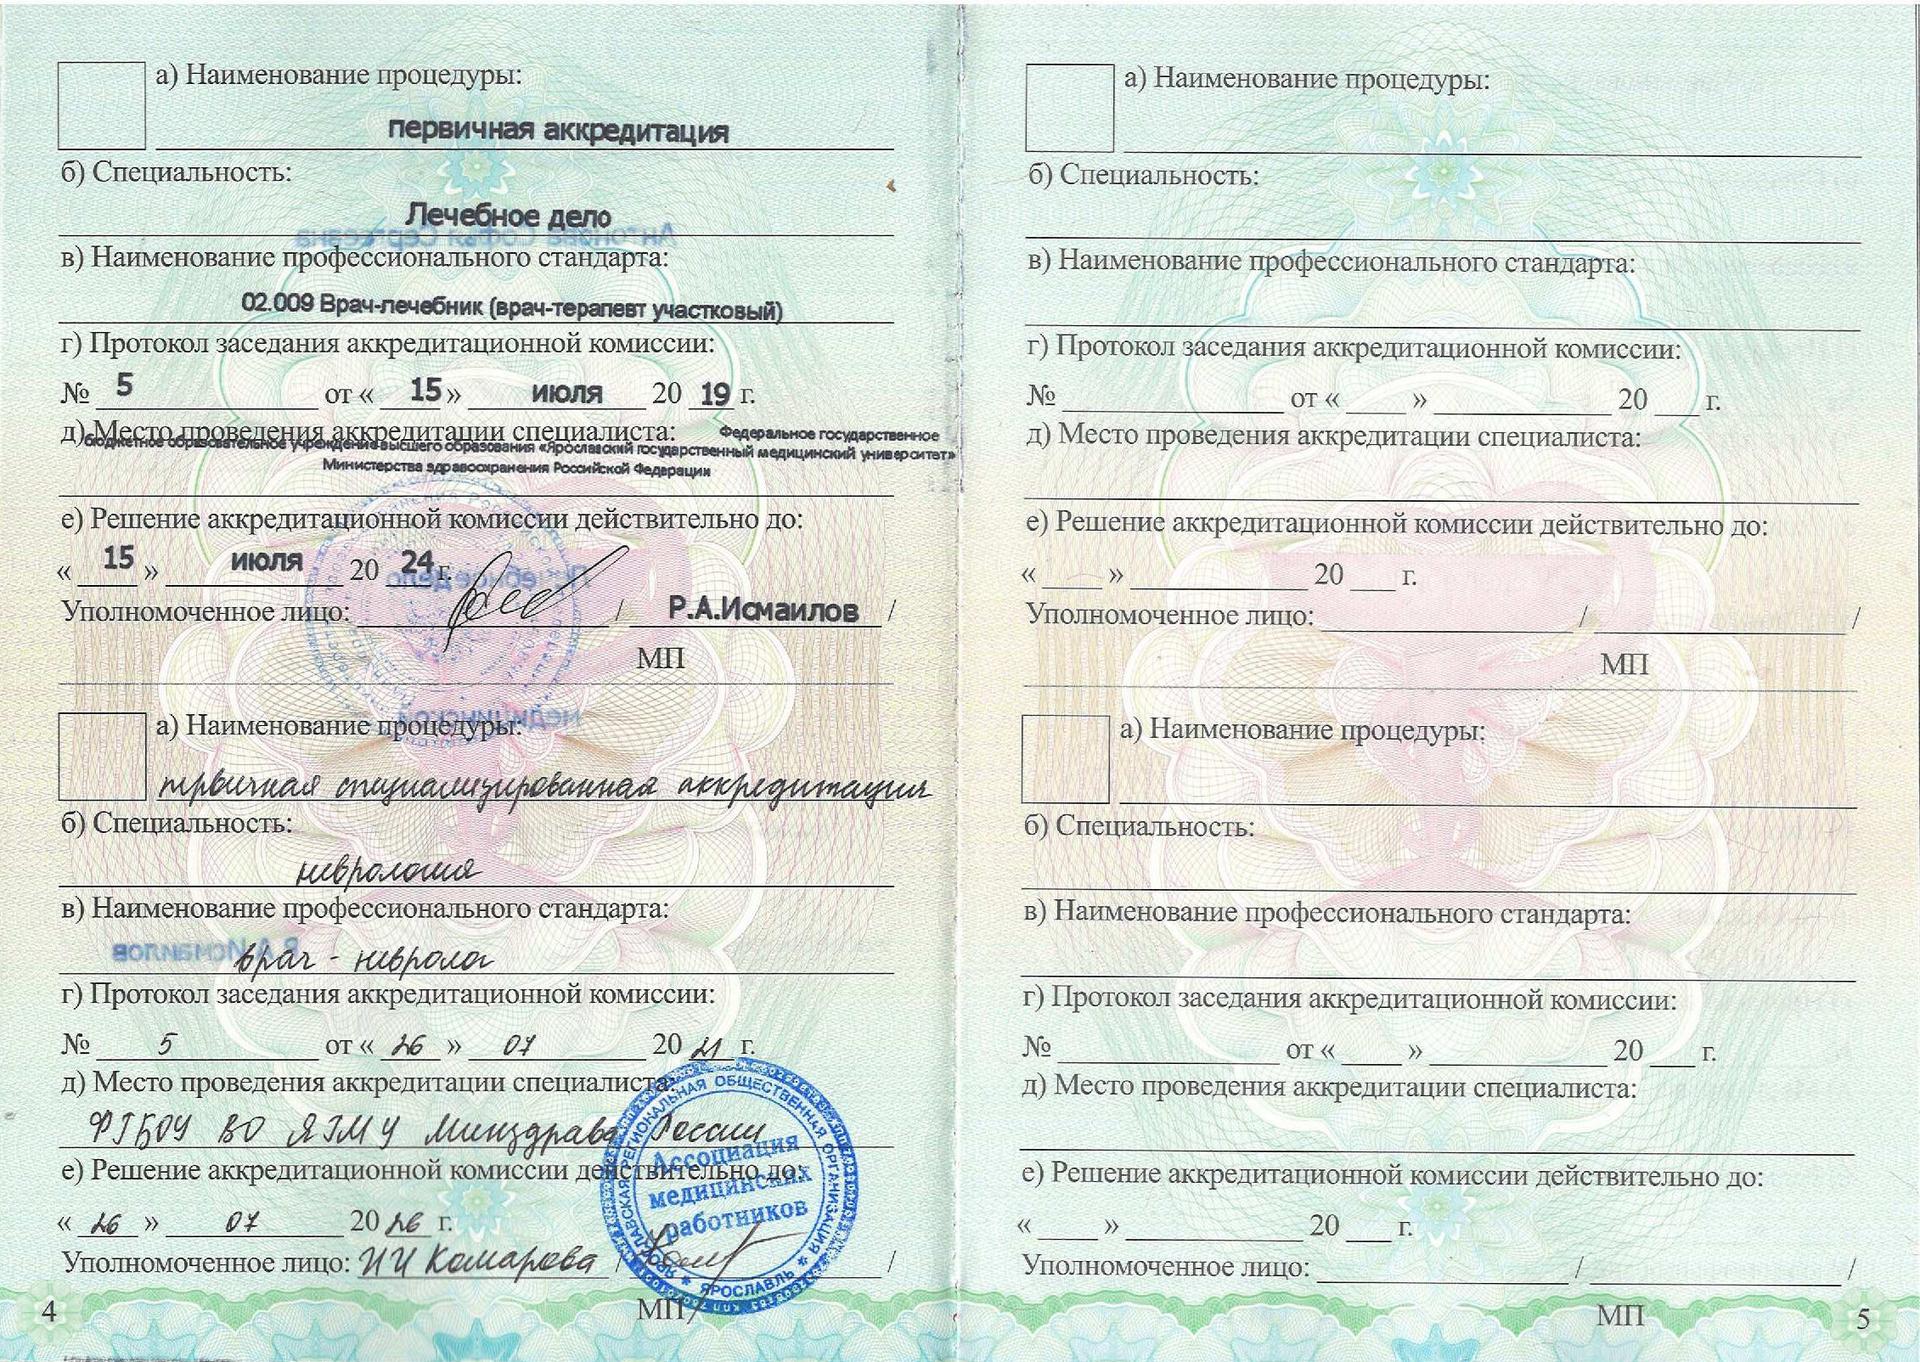 а) Наименование процедуры:
первичная аккредитация
б) Специальность:
Лечебное дело
в) Наименование профессионального стандарта:
02.009 Врач-лечебник (врач-терапевт участковый)
г) Протокол заседания аккредитационной комиссии:
№ 5 от « 15 » июля 20 19 г.
д) Место проведения аккредитации специалиста: Федеральное государственное
бюджетное образовательное учреждение высшего образования «Ярославский государственный медицинский университет»
Министерства здравоохранения Российской Федерации
е) Решение аккредитационной комиссии действительно до:
« 15 » июля 20 24 г.
Уполномоченное лицо: / Р.А.Исмаилов /
МП
а) Наименование процедуры:
первичная специализированная аккредитация
б) Специальность:
неврология
в) Наименование профессионального стандарта:
врач - невролог
г) Протокол заседания аккредитационной комиссии:
№ 5 от « 26 » 07 20 21 г.
д) Место проведения аккредитации специалиста:
ФГБОУ ВО ЯГМУ Минздрава России
е) Решение аккредитационной комиссии действительно до:
« 26 » 07 20 26 г.
Уполномоченное лицо: И И Комарова / /
МП
ЯРОСЛАВСКАЯ РЕГИОНАЛЬНАЯ ОБЩЕСТВЕННАЯ ОРГАНИЗАЦИЯ
Ассоциация
медицинских
работников
ЯРОСЛАВЛЬ
4
а) Наименование процедуры:
б) Специальность:
в) Наименование профессионального стандарта:
г) Протокол заседания аккредитационной комиссии:
№ от « » 20 г.
д) Место проведения аккредитации специалиста:
е) Решение аккредитационной комиссии действительно до:
« » 20 г.
Уполномоченное лицо: / /
МП
а) Наименование процедуры:
б) Специальность:
в) Наименование профессионального стандарта:
г) Протокол заседания аккредитационной комиссии:
№ от « » 20 г.
д) Место проведения аккредитации специалиста:
е) Решение аккредитационной комиссии действительно до:
« » 20 г.
Уполномоченное лицо: / /
МП
5